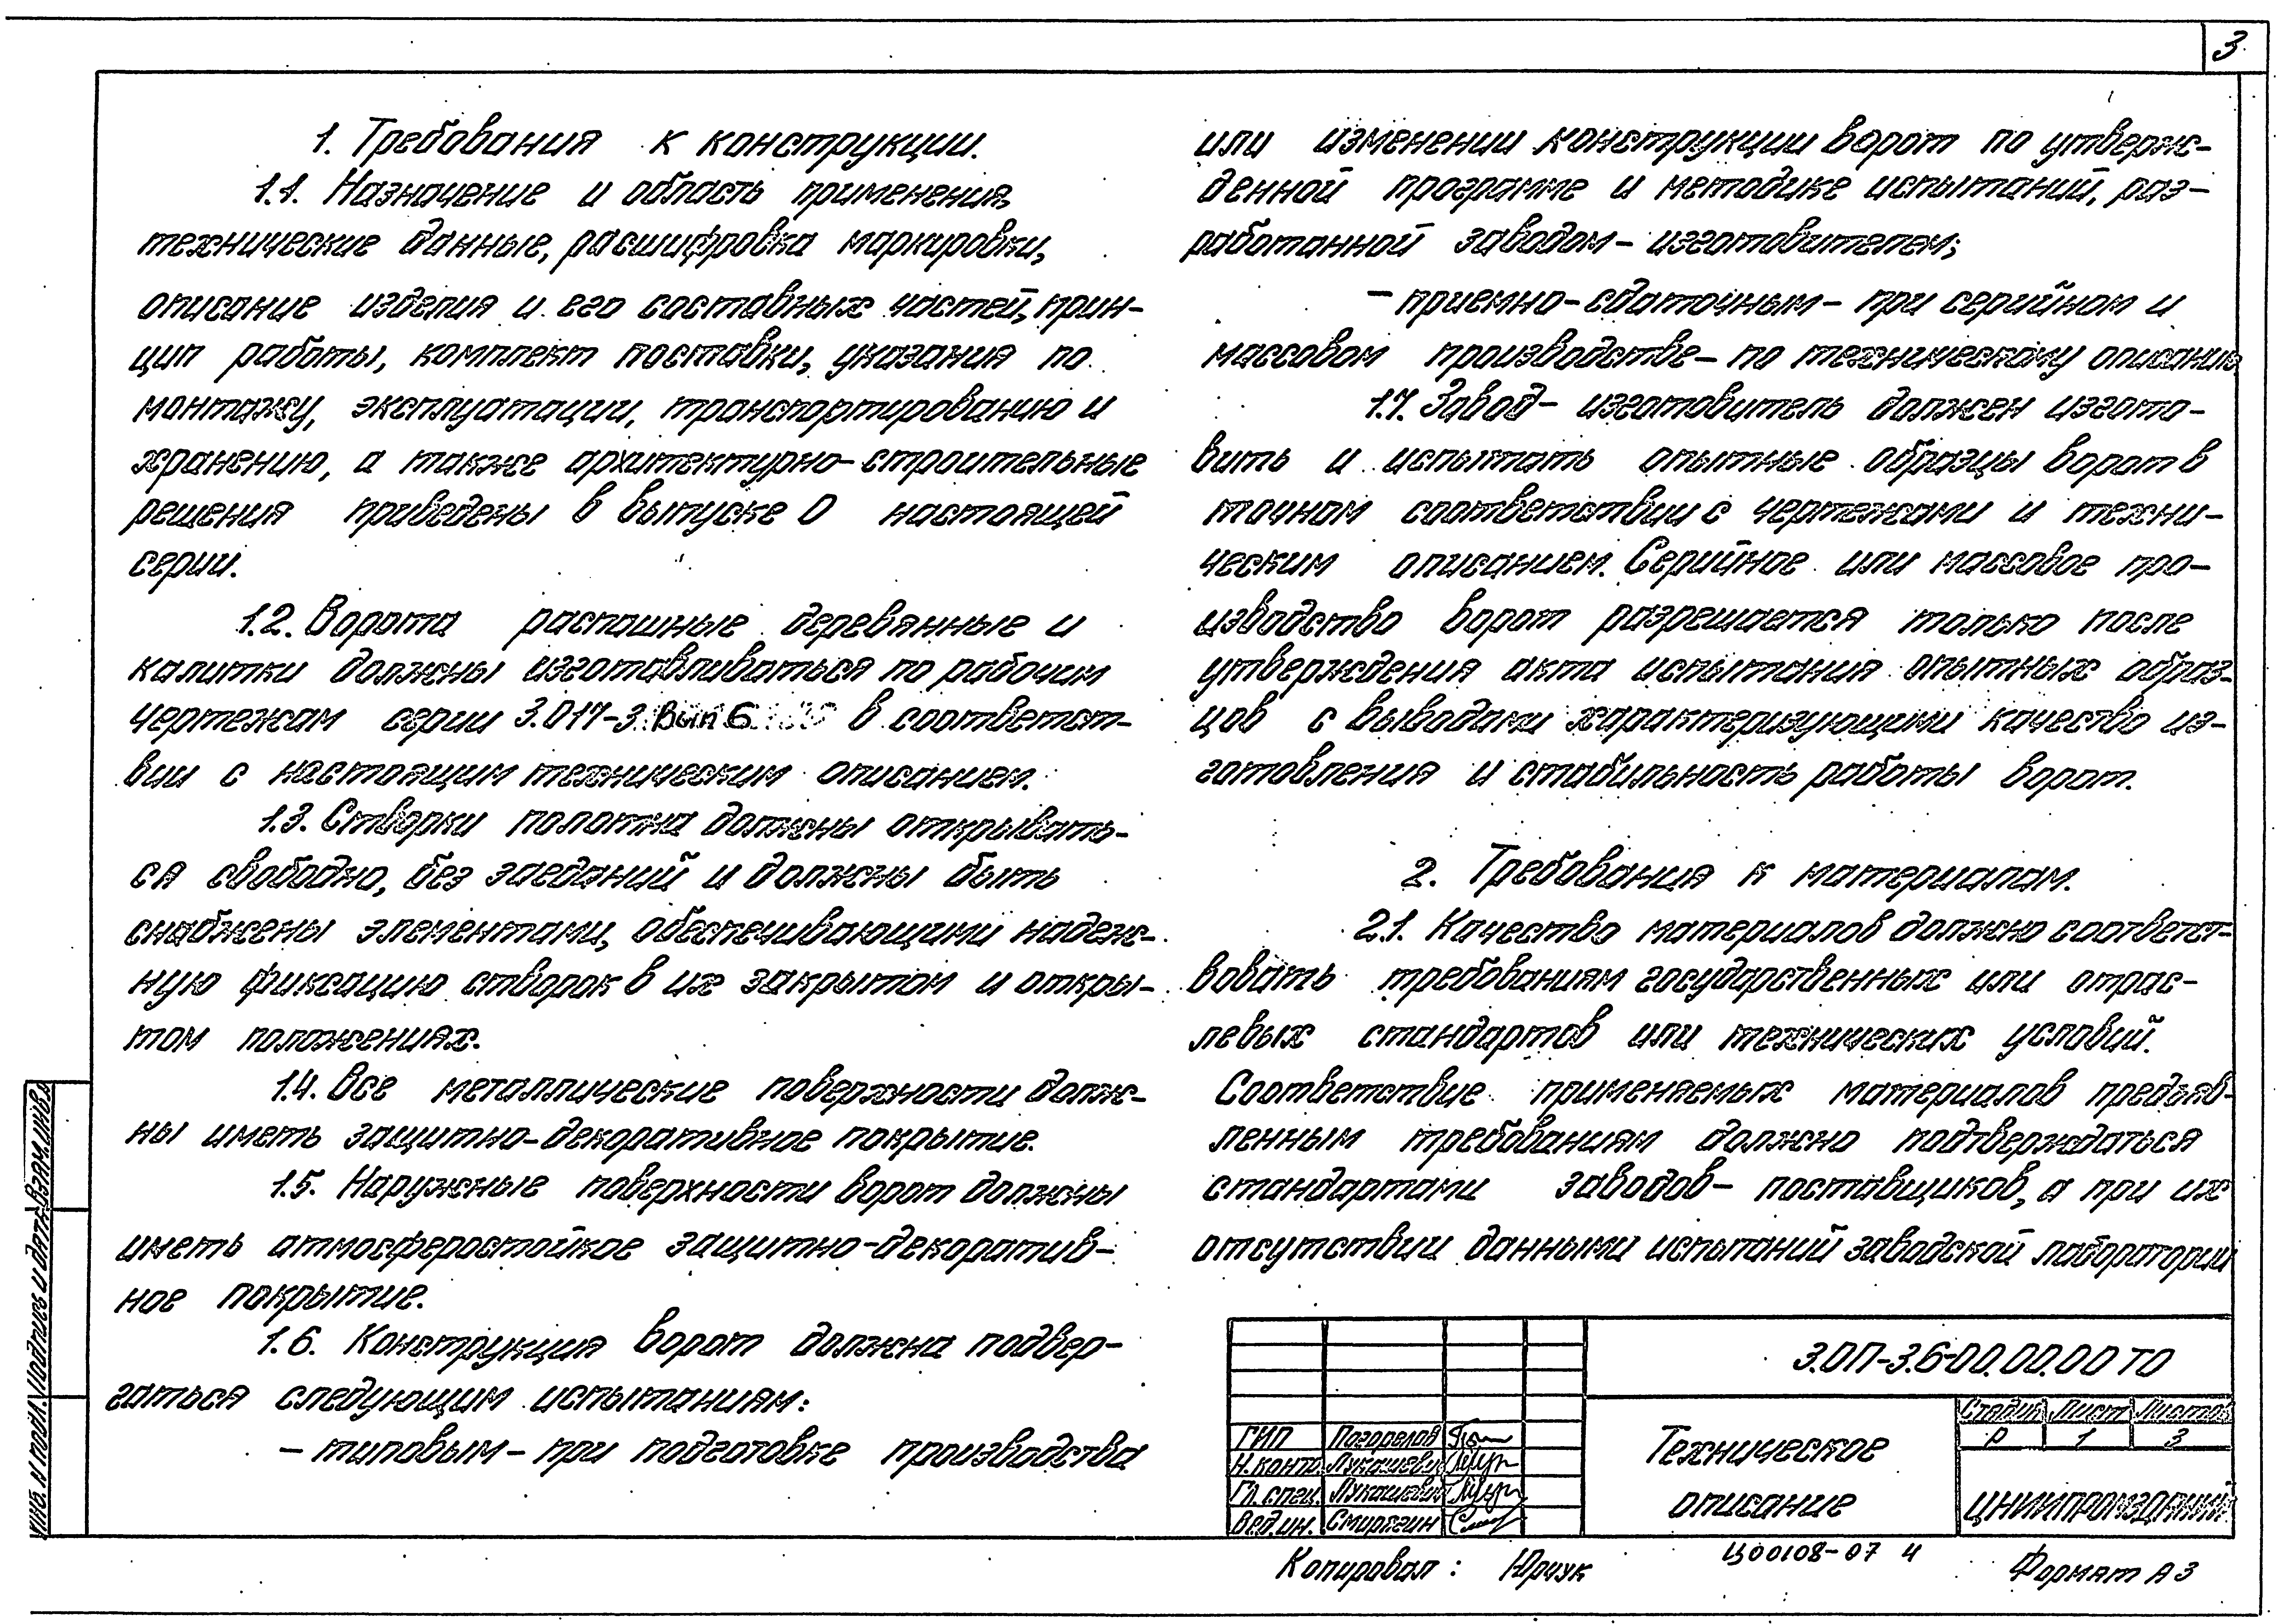 3
1. Требования к конструкции.
1.1. Назначение и область применения,
технические данные, расшифровка маркировки,
описание изделия и его составных частей, прин-
цип работы, комплект поставки, указания по
монтажу, эксплуатации, транспортированию и
хранению, а также архитектурно-строительные
решения приведены в выпуске 0 настоящей
серии.
1.2. Ворота распашные деревянные и
калитки должны изготавливаться по рабочим
чертежам серии 3.017-3. Вып 6 в соответст-
вии с настоящим техническим описанием.
1.3. Створки полотна должны открывать-
ся свободно, без заеданий и должны быть
снабжены элементами, обеспечивающими надеж-
ную фиксацию створок в их закрытом и откры-
том положениях.
1.4. Все металлические поверхности долж-
ны иметь защитно-декоративное покрытие.
1.5. Наружные поверхности ворот должны
иметь атмосферостойкое защитно-декоратив-
ное покрытие.
1.6. Конструкция ворот должна подвер-
гаться следующим испытаниям:
- типовым - при подготовке производства
или изменении конструкции ворот по утверж-
денной программе и методике испытаний, раз-
работанной заводом - изготовителем;
- приемно-сдаточным - при серийном и
массовом производстве - по техническому описанию
1.7. Завод - изготовитель должен изгото-
вить и испытать опытные образцы ворот в
точном соответствии с чертежами и техни-
ческим описанием. Серийное или массовое про-
изводство ворот разрешается только после
утверждения акта испытания опытных образ-
цов с выводами характеризующими качество из-
готовления и стабильность работы ворот.
2. Требования к материалам.
2.1. Качество материалов должно соответст-
вовать требованиям государственных или отрас-
левых стандартов или технических условий.
Соответствие применяемых материалов предъяв-
ленным требованиям должно подтверждаться
стандартами заводов - поставщиков, а при их
отсутствии данными испытаний заводской лаборатории
3.017-3.6-00.00.00 ТО
ГИП Погорелов
Н.контр. Лукашевич
Гл. спец. Лукашевич
Вед.ин. Смирягин
Техническое
описание
Стадия Лист Листов
Р 1 3
ЦНИИПРОМЗДАНИЙ
Копировал: Юрчук
Ц00108-07 4
Формат А3
Инв. N подл. Подпись и дата Взам.инв.N